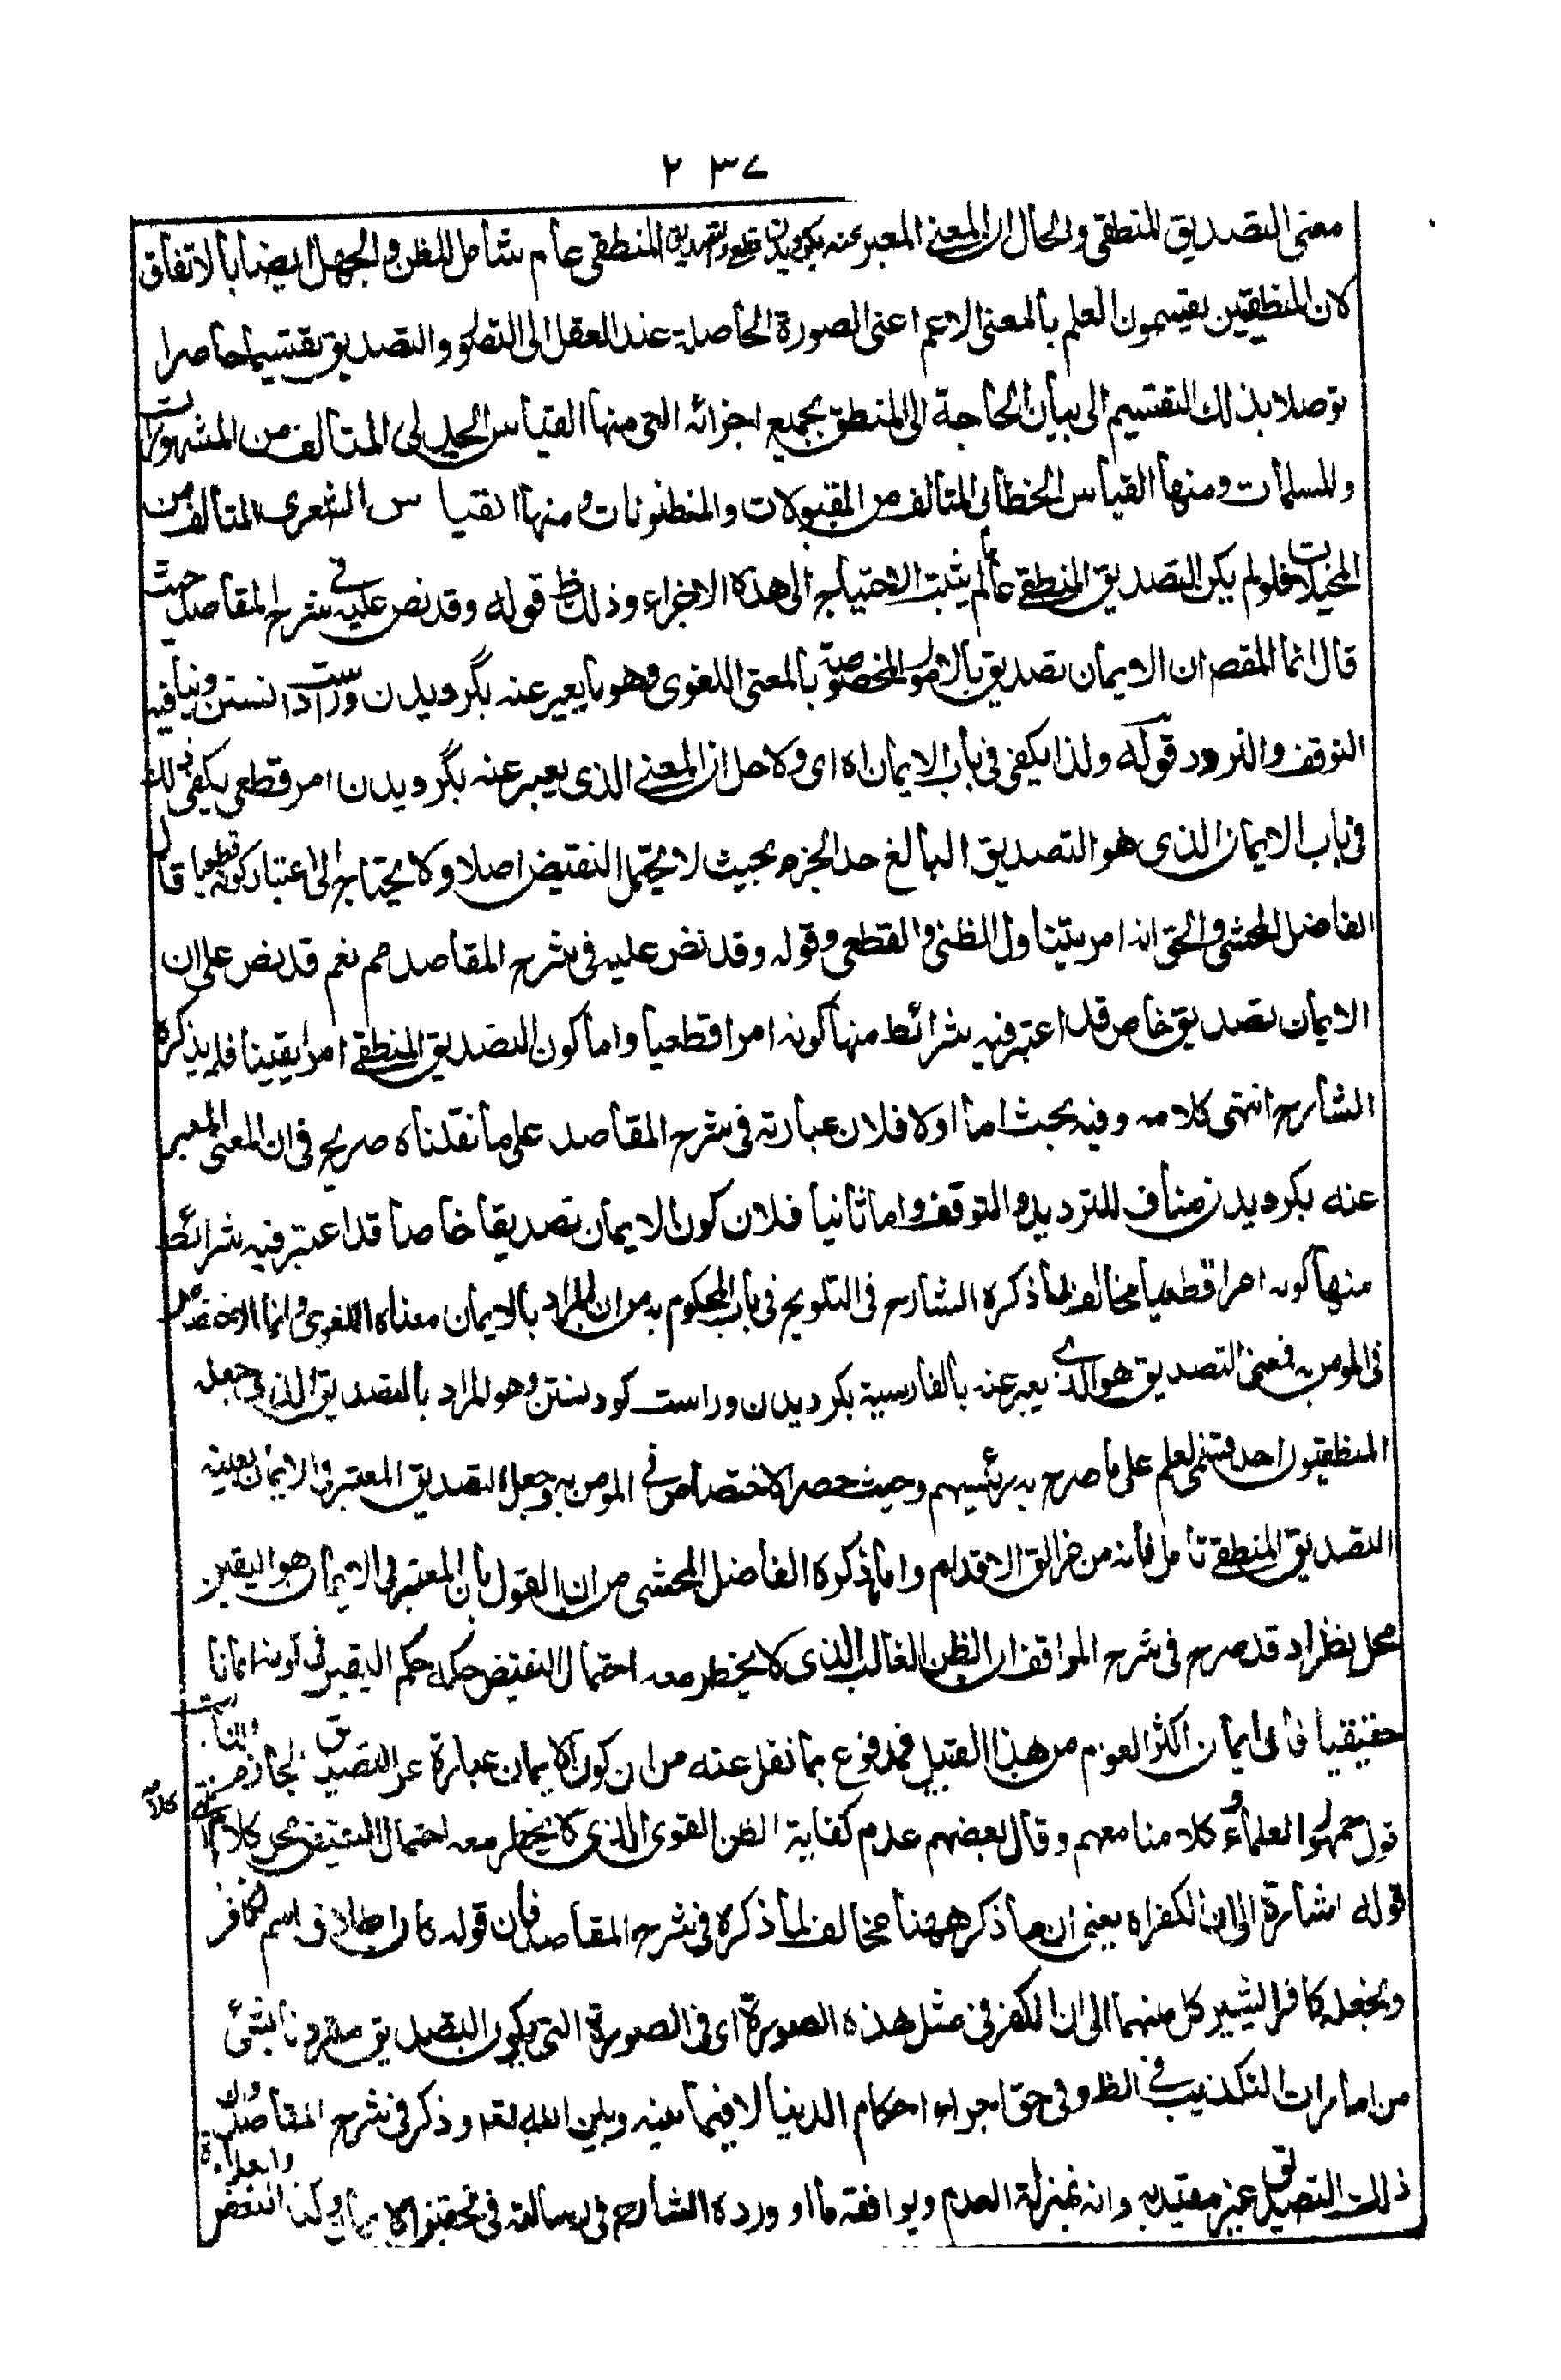 ٢٣٧
معنى التصديق المنطقي والحال ان المعنى المعبر عنه بكرويدن قطعي والتصديق المنطقي عام شامل للظن والجهل ايضا بالاتفاق
لان المنطقيين يقسمون العلم بالمعنى الاعم اعنى الصورة الحاصلة عند العقل الى التصور والتصديق تقسيما حاصرا
توصلا بذلك التقسيم الى بيان الحاجة الى المنطق بجميع اجزائه التى منها القياس الجدلى المتالف من المشهورات
والمسلمات ومنها القياس الخطابى المتالف من المقبولات والمظنونات ومنها القياس الشعرى المتالف من
المخيلات فلو لم يكن التصديق المنطقي عاما لم يثبت الاحتياج الى هذه الاجزاء وذلك ظ قوله وقد نص عليه في شرح المقاصد حيث
قال انما المقصم ان الايمان تصديق بالامور المخصوصة بالمعنى اللغوى وهو ما يعبر عنه بگرويدن وراست دانستن وينافيه
التوقف والتردد قوله ولذا يكفى فى باب الايمان اه اى ولاجل ان المعنى الذى يعبر عنه بگرويدن امر قطعى يكفى ذلك
فى باب الايمان الذى هو التصديق البالغ حد الجزم بحيث لا يحتمل النقيض اصلا ولا يحتاج الى اعتبار كونه قطعيا قال
الفاضل المحشى والحق انه امر يتناول الظنى والقطعى وقوله وقد نص عليه فى شرح المقاصد مم نعم قد نص على ان
الايمان تصديق خاص قد اعتبر فيه شرائط منها كونه امرا قطعيا واما كون التصديق المنطقي امرا يقينا فلم يذكره
الشارح انتهى كلامه وفيه بحث اما اولا فلان عبارته فى شرح المقاصد على ما نقلناه صريح فى ان المعنى المعبر
عنه بكرديدن مناف للترديد والتوقف واما ثانيا فلان كون الايمان تصديقا خاصا قد اعتبر فيه شرائط
منها كونه امرا قطعيا مخالف لما ذكره الشارح فى التلويح فى باب المحكوم به من ان المراد بالايمان معناه اللغوى وانما الاختصاص
فى المومن به فمعنى التصديق هو الذى يعبر عنه بالفارسية بكرديدن وراست كودنستن وهو المراد بالتصديق الذى جعله
المنطقيون احد قسمى العلم على ما صرح به رئيسهم وحيث حصر الاختصاص في المومن به وجعل التصديق المعتبر فى الايمان بعينه
التصديق المنطقي تامل فانه من مزالق الاقدام واما ما ذكره الفاضل المحشى من ان القول بان المعتبر فى الايمان هو اليقين
محل نظر اد قد صرح فى شرح المواقف ان الظن الغالب الذى لا يخطر معه احتمال النقيض حكمه حكم اليقين فى كونه ايمانا
حقيقيا فان ايمان اكثر العوام من هذا القبيل فمدفوع بما نقل عنه من ان كون الايمان عبارة عن التصديق الجازم والثابت
قول جمهور العلماء وكلامنا معهم وقال بعضهم عدم كفاية الظن القوى الذى لا يخطر معه احتمال النقيض محل كلام انتهى كلامه
قوله اشارة الى ان الكفر اه يعنى ان ما ذكر ههنا مخالف لما ذكره فى شرح المقاصد فان قوله كان اطلاق اسم الكافر
ونجعله كافرا يشير كل منهما الى ان الكفر فى مثل هذه الصورة اى فى الصورة التى يكون التصديق مقرونا بشئ
من امارات التكذيب في الظ وفى حق اجراء احكام الدنيا لا فيما بينه وبين الله تعه وذكر فى شرح المقاصد ان
ذلك التصديق غير معتد به وانه بمنزلة العدم ويوافقه ما اورده الشارح فى رسالته فى تحقيق الايمان